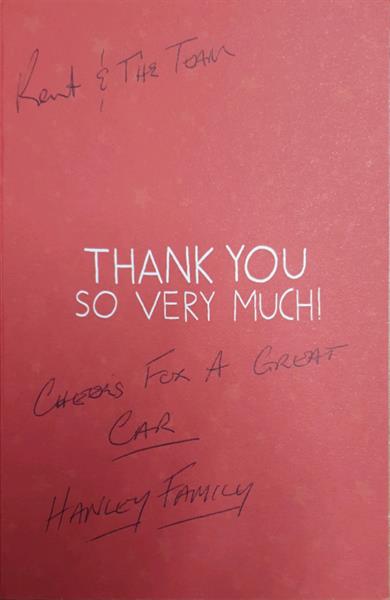 Kent & THE TEAM
THANK YOU
SO VERY MUCH!
CHEERS FOR A GREAT
CAR
HANLEY FAMILY